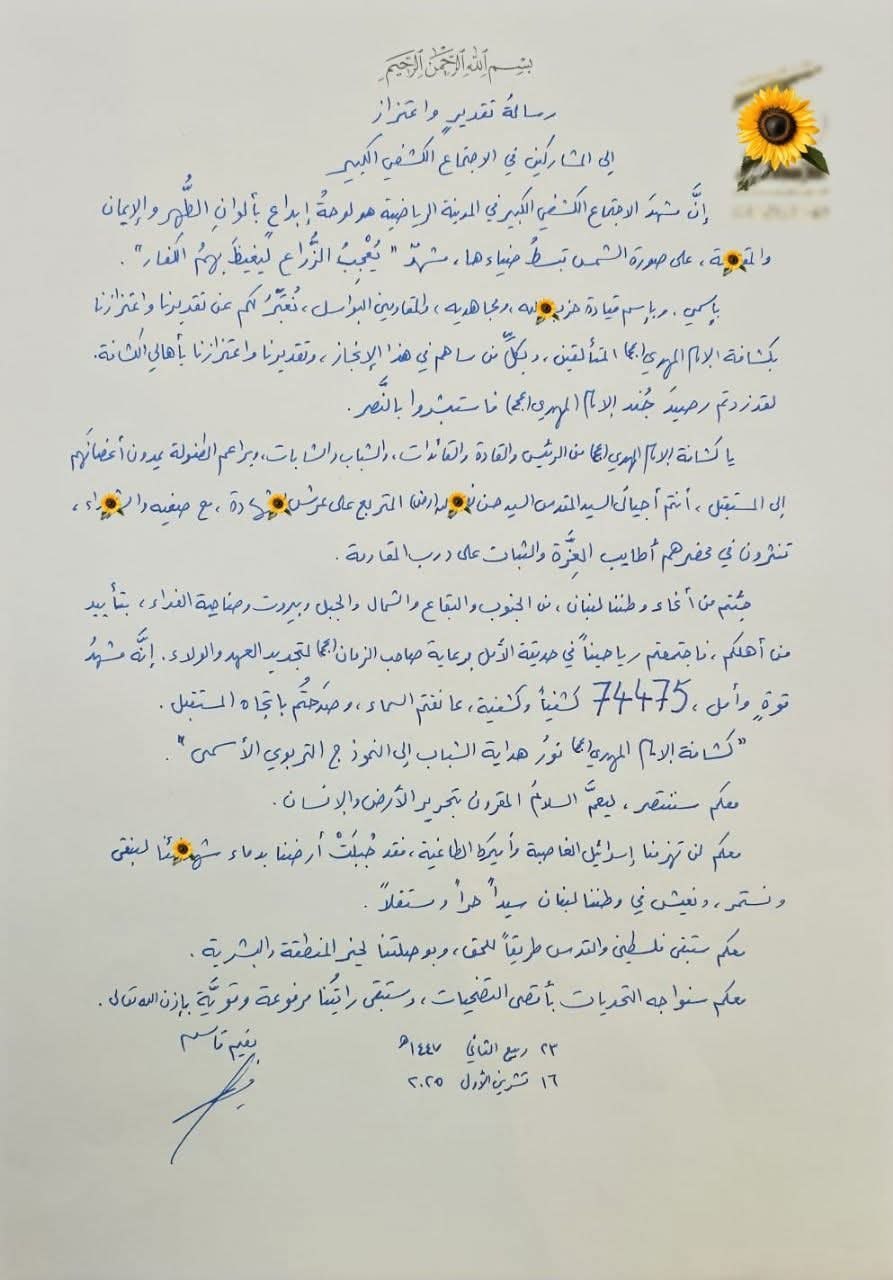 بسم الله الرحمن الرحيم
رسالةُ تقديرٍ واعتزاز
إلى المشاركين في الاجتماع الكشفي الكبير
إنَّ مشهدَ الاجتماع الكشفي الكبير في المدينة الرياضية هو لوحةُ إبداعٍ بألوانِ الطُّهر والإيمان
والمق ة، على صورة الشمس تبسطُ ضياءها، مشهدٌ "يُعْجِبُ الزُّراع ليَغيظَ بهمُ الكفار".
بإسمي، وبإسم قيادة حزب له، ومجاهديه، والمقاومين البواسل، نُعبِّرُ لكم عن تقديرنا واعتزازنا
بكشافة الإمام المهدي(عج) المتألقين، وبكلِّ من ساهم في هذا الإنجاز، وتقديرنا واعتزازنا بأهالي الكشافة.
لقد زدتم رصيدَ جُند الإمام المهدي(عج) فاستبشروا بالنَّصر.
يا كشافة الإمام المهدي(عج) من الرئيس والقادة والقائدات، والشباب والشابات، وبراعم الطفولة يمدون أغصانَهم
إلى المستقبل، أنتم أجيالُ السيد المقدس السيد حسن (رض) المتربع على عرش هادة، مع صفيه والش اء،
تنثرون في محضرهم أطايب العِزَّة والثبات على درب المقاومة.
جئتم من أنحاء وطننا لبنان، من الجنوب والبقاع والشمال والجبل وبيروت وضاحية الفداء، بتأييد
من أهلكم، فاجتمعتم رياحيناً في حديقة الأمل برعاية صاحب الزمان(عج) لتجديد العهد والولاء. إنَّه مشهدُ
قوةٍ وأمل، 74475 كشفياً وكشفية، عانقتم السماء، وصَدَحتُم باتجاه المستقبل.
"كشافة الإمام المهدي(عج) نورُ هداية الشباب إلى النموذج التربوي الأسمى".
معكم سننتصر، ليعمَّ السلامُ المقرون بتحرير الأرض والإنسان.
معكم لن تهزمنا إسرائيل الغاصبة وأميركا الطاغية، فقد جُبِلَتْ أرضنا بدماء شه ئنا لنبقى
ونستمر، ونعيش في وطننا لبنان سيداً حراً ومستقلاً.
معكم ستبقى فلسطين والقدس طريقاً للحق، وبوصلتنا لخير المنطقة والبشرية.
معكم سنواجه التحديات بأقصى التضحيات، وستبقى رايتُنا مرفوعة وقويَّة بإذن الله تعالى.
نعيم قاسم
٢٣ ربيع الثاني ١٤٤٧ه
١٦ تشرين الأول ٢٠٢٥